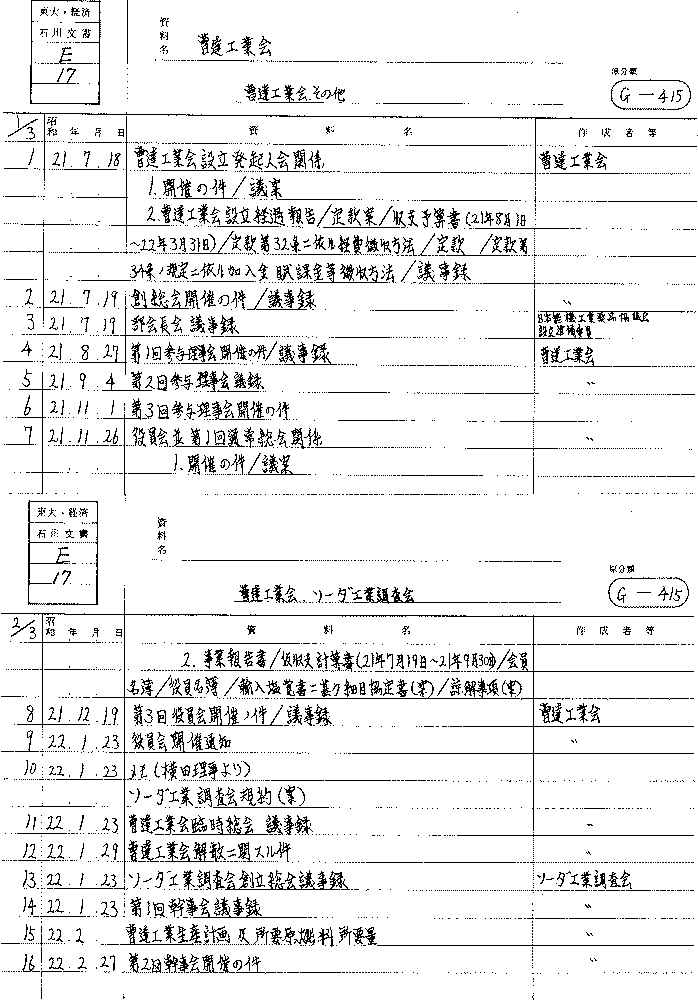 東大・経済
石川文書
E
17
資料名
曹達工業会
曹達工業会、その他
原分類
G-415
1/3 昭和 年 月 日 資料名 作成者等
1 21.7.18 曹達工業会設立発起人会関係 曹達工業会
1.開催の件/議案
2.曹達工業会設立経過報告/定款案/収支予算書(21年8月1日
~22年3月31日)/定款第32条ニ依ル経費徴収方法/定款 /定款第
34条ノ規定ニ依ル加入金賦課金等徴収方法/議事録
2 21.7.19 創総会開催の件/議事録 〃
3 21.7.19 部会長会議事録 日本無機工業薬品協議会
設立準備委員
4 21.8.27 第1回参与理事会開催の件/議事録 曹達工業会
5 21.9.4 第2回参与理事会議録 〃
6 21.11.1 第3回参与理事会開催の件
7 21.11.26 役員会並第1回通常総会関係 〃
1.開催の件/議案
東大・経済
石川文書
E
17
資料名
曹達工業会、ソーダ工業調査会
原分類
G-415
2/3 昭和 年 月 日 資料名 作成者等
2.事業報告書/仮収支計算書(21年7月19日~21年9月30日)/会員
名簿/役員名簿/輸入塩覚書ニ基ク細目協定書(案)/諒解事項(案)
8 21.12.19 第3回役員会開催ノ件/議事録 曹達工業会
9 22.1.23 役員会開催通知 〃
10 22.1.23 メモ(横田理事より)
ソーダ工業調査会規約(案)
11 22.1.23 曹達工業会臨時総会 議事録 〃
12 22.1.29 曹達工業会解散ニ関スル件 〃
13 22.1.23 ソーダ工業調査会創立総会議事録 ソーダ工業調査会
14 22.1.23 第1回幹事会議事録 〃
15 22.2 曹達工業生産計画及所要原燃料所要量 〃
16 22.2.27 第2回幹事会開催の件 〃